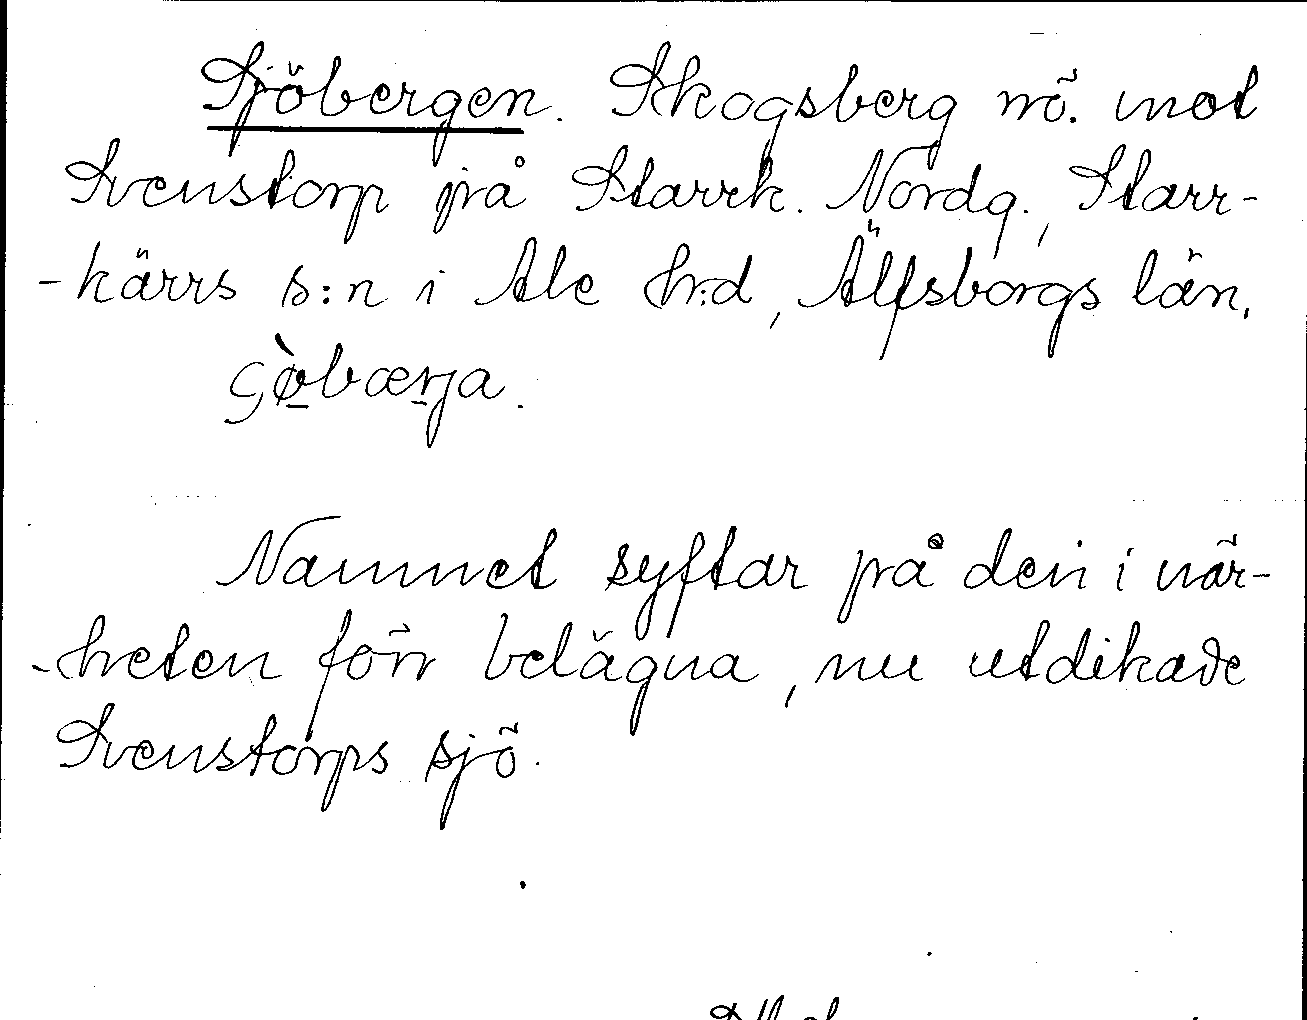 Sjöbergen. Skogsberg nö. mot
Svenstorp på Starrk. Nordg., Starr-
-kärrs s:n i Ale h:d, Älfsborgs län.
Namnet syftar på den i när-
-heten förr belägna, nu utdikade
Svenstorps sjö.